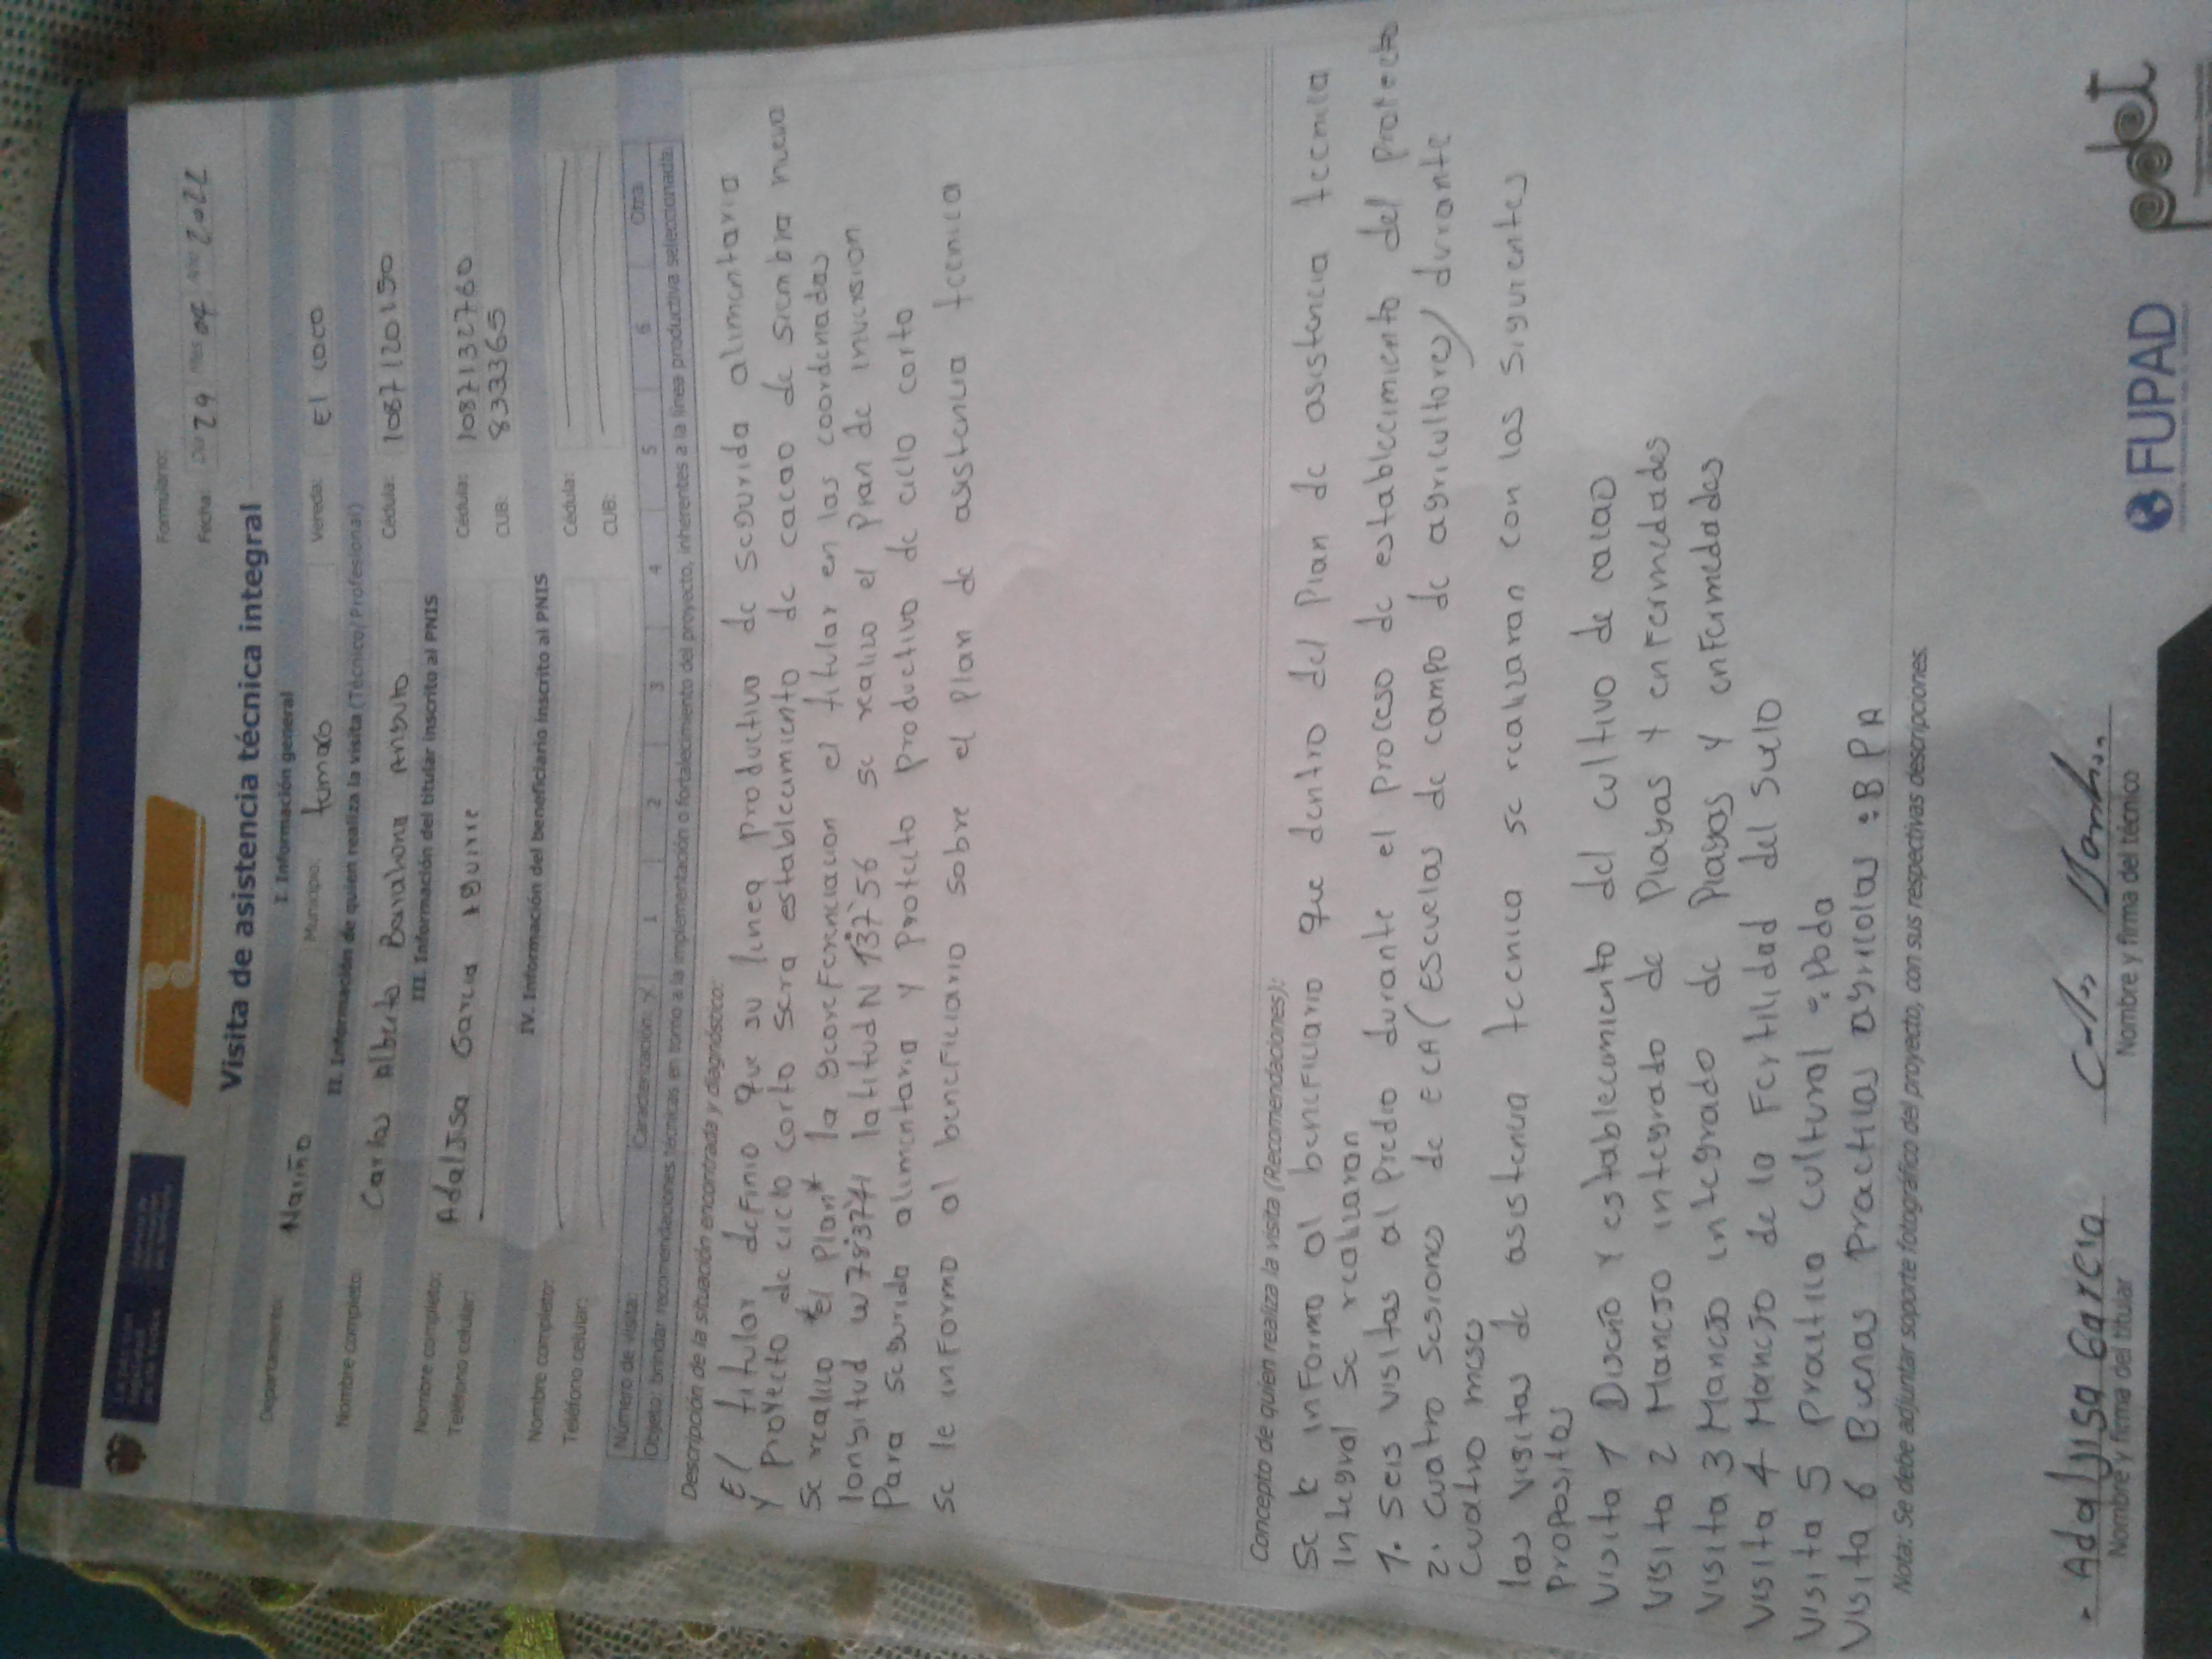 Formulario:
Fecha: Día 29 Mes 04 Año 2022
Visita de asistencia técnica integral
I. Información general
Departamento: Nariño Municipio: tumaco Vereda: El coco
II. Información de quien realiza la visita (Técnico/Profesional)
Nombre completo: Carlos Alberto Barahona Angulo Cédula: 1087120150
III. Información del titular inscrito al PNIS
Nombre completo: Adaljisa Garcia Aguirre Cédula: 1087132760
Teléfono celular: CUB: 833365
IV. Información del beneficiario inscrito al PNIS
Nombre completo: Cédula:
Teléfono celular: CUB:
Número de visita: Caracterización: X 1 2 3 4 5 6 Otra:
Objeto: brindar recomendaciones técnicas en torno a la implementación o fortalecimiento del proyecto, inherentes a la línea productiva seleccionada.
Descripción de la situación encontrada y diagnóstico:
El titular definio que su linea productivo de segurida alimentaria
y proyecto de ciclo corto sera establecimiento de cacao de siembra nueva
se realico el Plan* la georeferenciacion el titular en las coordenadas
longitud w 78°37'41 latitud N 1°37'56 se realico el plan de inversion
Para segurida alimentaria y Protecto productivo de ciclo corto
se le informo al beneficiario sobre el plan de asistencia tecnica
Concepto de quien realiza la visita (Recomendaciones):
Se le informo al beneficiario que dentro del Plan de asistencia tecnica
integral se realizaran
1. Seis visitas al predio durante el proceso de establecimiento del protecto
2. cuatro sesiones de ECA (escuelas de campo de agricultores) durante
cuatro meses
las visitas de asistencia tecnica se realizaran con las siguientes
propositos
visita 1 Diseño y establecimiento del cultivo de cacao
visita 2 Manejo integrado de Plagas y enfermedades
visita 3 Manejo integrado de Plagas y enfermedades
visita 4 Manejo de la Fertilidad del suelo
visita 5 Practica cultural : Poda
visita 6 Buenas practicas agricolas : B P A
Nota: Se debe adjuntar soporte fotográfico del proyecto, con sus respectivas descripciones.
Adaljisa Garcia
Nombre y firma del titular Nombre y firma del técnico
FUPAD pdet